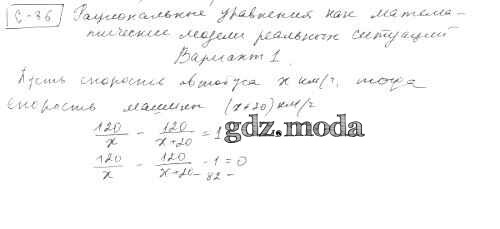 С-36 Рациональные уравнения как матема-
тические модели реальных ситуаций
Вариант 1.
Пусть скорость автобуса x км/ч, тогда
скорость машины (x+20) км/ч
120/x - 120/(x+20) = 1
gdz.moda
120/x - 120/(x+20) - 1 = 0
- 82 -